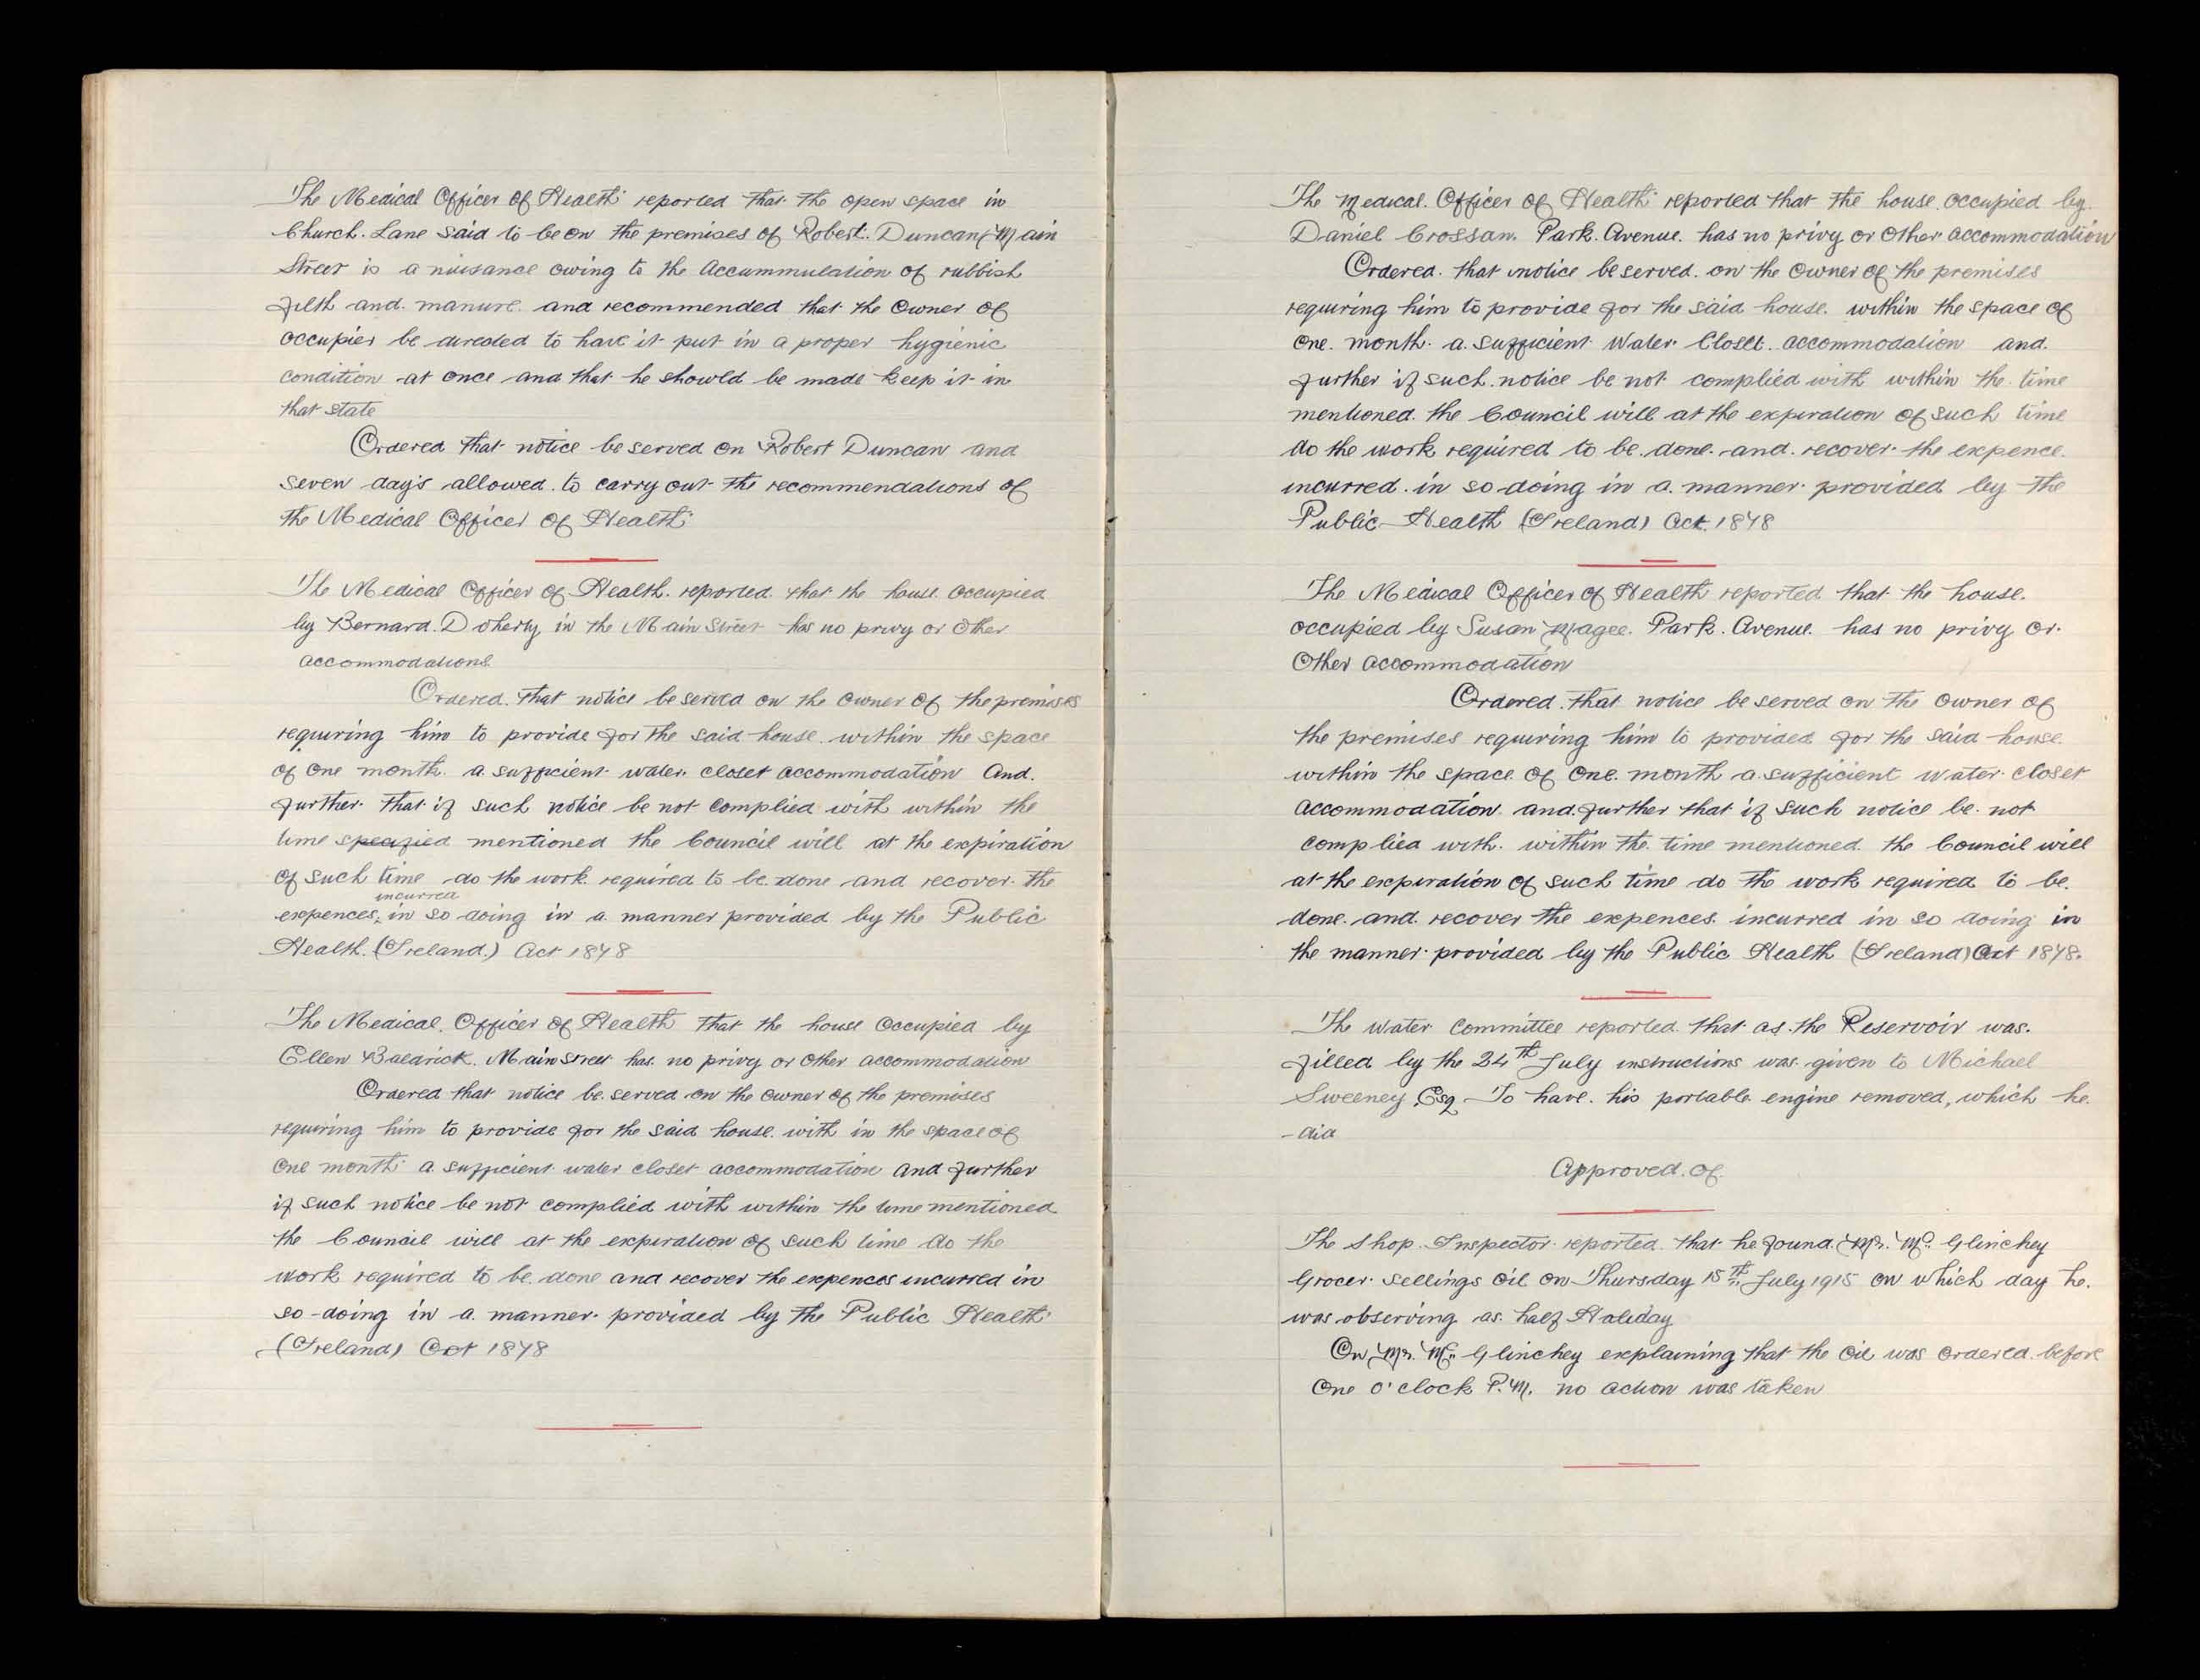 The Medical Officer of Health reported that the open space in
Church Lane said to be on the premises of Robert Duncan Main
Street is a nuisance owing to the Accummulation of rubbish
filth and manure and recommended that the Owner of
occupier be directed to have it put in a proper hygienic
condition at once and that he should be made keep it in
that state
Ordered that notice be served on Robert Duncan and
seven day's allowed to carry out the recommendations of
the Medical Officer of Health
The Medical Officer of Health reported that the house occupied
by Bernard Doherty in the Main Street has no privy or other
accommodations
Ordered that notice be served on the owner of the premises
requiring him to provide for the said house within the space
of one month a sufficient water closet accommodation And
further that if such notice be not complied with within the
time specified mentioned the Council will at the expiration
of such time do the work required to be done and recover the
incurred
expences in so doing in a manner provided by the Public
Health (Ireland) Act 1878
The Medical Officer of Health that the house occupied by
Ellen Baldrick Main Street has no privy or other accommodation
Ordered that notice be served on the owner of the premises
requiring him to provide for the said house with in the space of
one month a sufficient water closet accommodation and further
if such notice be not complied with within the time mentioned
the Council will at the expiration of such time do the
work required to be done and recover the expences incurred in
so-doing in a manner provided by the Public Health
(Ireland) Act 1878
The Medical Officer of Health reported that the house occupied by
Daniel Crossan Park Avenue has no privy or other accommodation
Ordered that notice be served on the owner of the premises
requiring him to provide for the said house within the space of
one month a sufficient Water Closet accommodation and
further if such notice be not complied with within the time
mentioned the Council will at the expiration of such time
do the work required to be done and recover the expence
incurred in so-doing in a manner provided by the
Public Health (Ireland) Act 1878
The Medical Officer of Health reported that the house
occupied by Susan Magee Park Avenue has no privy or
other accommodation
Ordered that notice be served on the owner of
the premises requiring him to provided for the said house
within the space of one month a sufficient water closet
accommodation and further that if such notice be not
complied with within the time mentioned the Council will
at the expiration of such time do the work required to be
done and recover the expences incurred in so doing in
the manner provided by the Public Health (Ireland) Act 1878.
The Water Committee reported that as the Reservoir was
filled by the 24th July instructions was given to Michael
Sweeney Esq To have his portable engine removed, which he
- did
Approved of
The Shop Inspector reported that he found Mr. Mc. Glinchey
Grocer sellings oil on Thursday 15th July 1915 on which day he
was observing as half Holiday
On Mr. Mc. Glinchey explaining that the oil was ordered before
One o'clock P.M. no action was taken